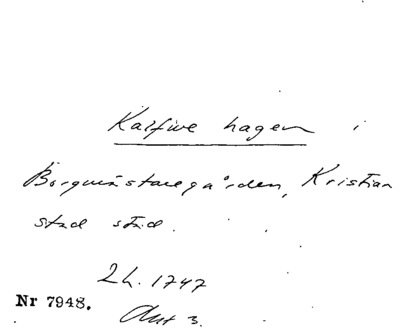 Kalfwe hagen i
Borgmästaregården, Kristian
stad stad.
2 h. 1747
Nr 7948.
Akt 3.